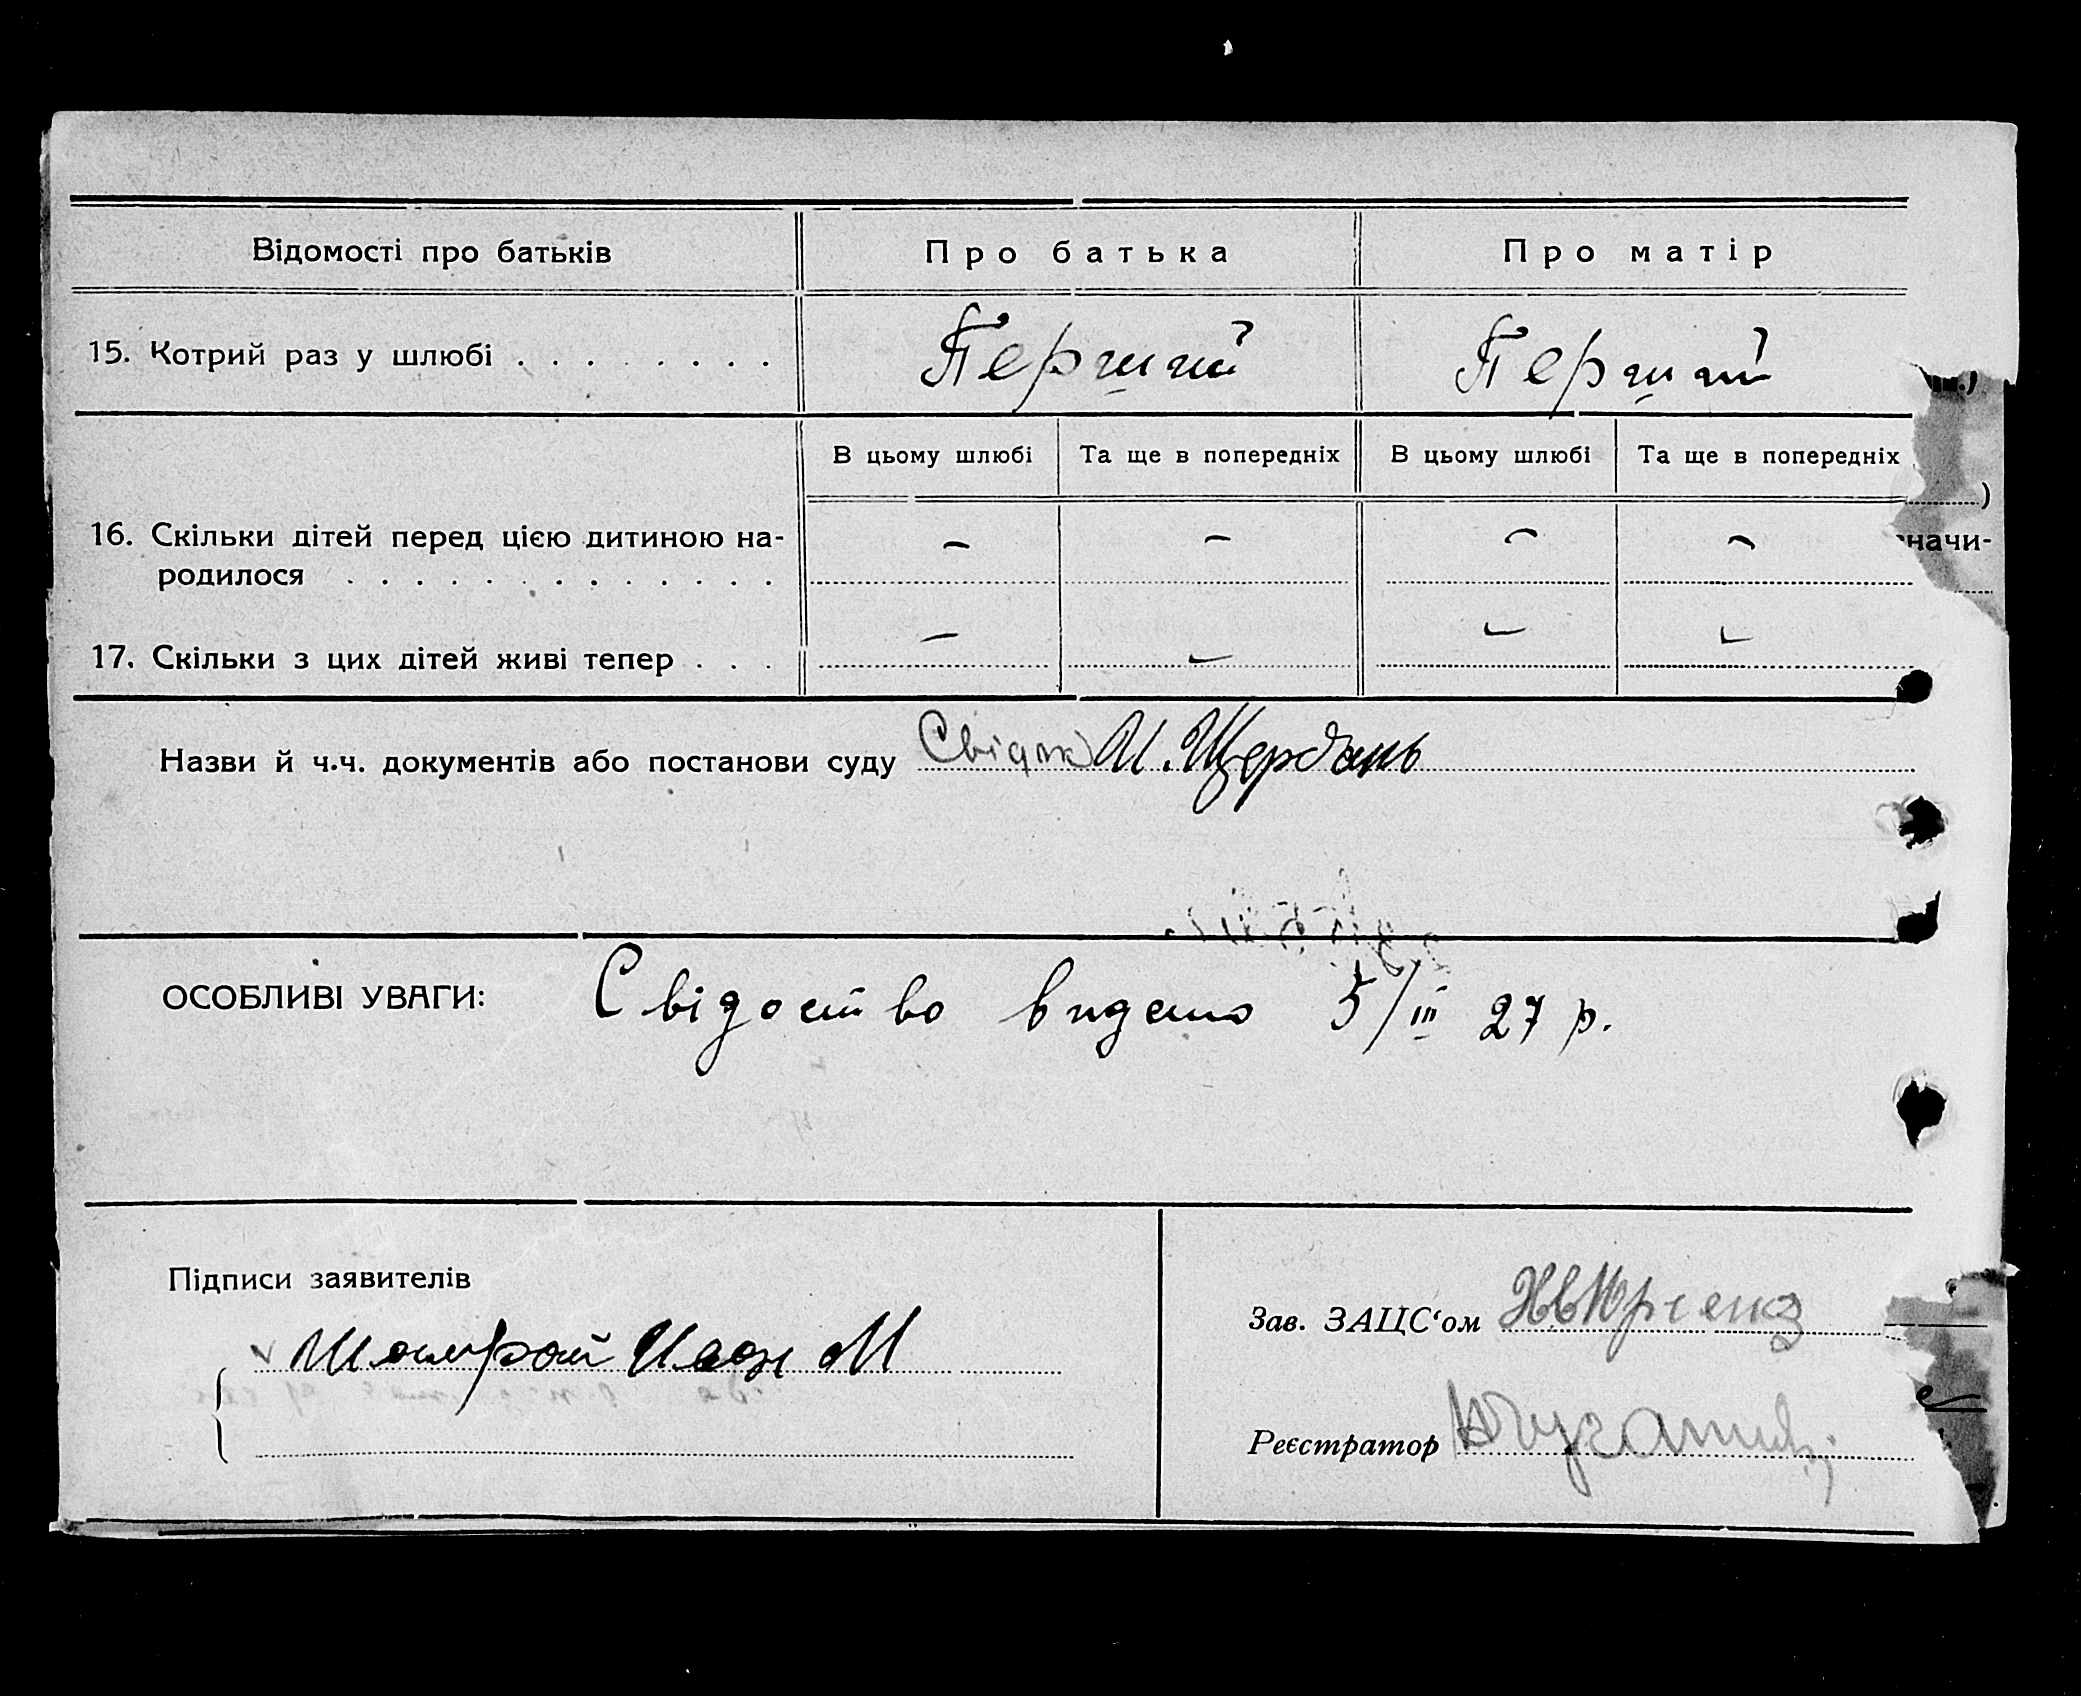 Відомості про батьків Про батька Про матір
15. Котрий раз у шлюбі . . . . . . . . Перший Перший
В цьому шлюбі Та ще в попередніх В цьому шлюбі Та ще в попередніх
16. Скільки дітей перед цією дитиною на- — — — —
родилося . . . . . . . . . . . . . .
начи-
17. Скільки з цих дітей живі тепер . . . — — — —
Назви й ч.ч. документів або постанови суду Свідок И. Щербань
ОСОБЛИВІ УВАГИ: Свідоство видано 5/III 27 р.
Підписи заявителів
Иван М
Зав. ЗАЦС‘ом
Реєстратор